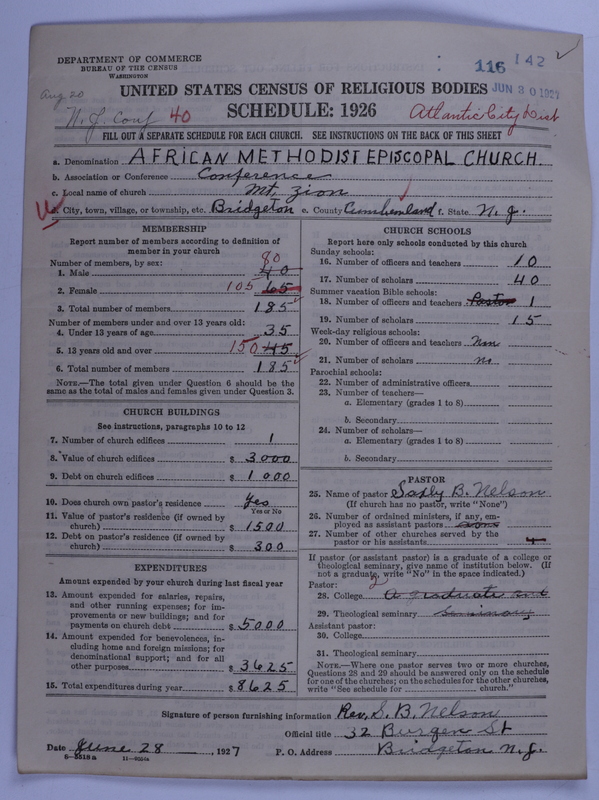 DEPARTMENT OF COMMERCE
BUREAU OF THE CENSUS
WASHINGTON
116 142
JUN 30 1927
Aug 20
UNITED STATES CENSUS OF RELIGIOUS BODIES
N. J. Conf 40 SCHEDULE: 1926 Atlantic City Dist
FILL OUT A SEPARATE SCHEDULE FOR EACH CHURCH. SEE INSTRUCTIONS ON THE BACK OF THIS SHEET
a. Denomination AFRICAN METHODIST EPISCOPAL CHURCH.
b. Association or Conference Conference
c. Local name of church Mt. Zion
d. City, town, village, or township, etc. Bridgeton e. County Cumberland f. State N. J.
MEMBERSHIP
Report number of members according to definition of
member in your church
Number of members, by sex:
1. Male 40 80
2. Female 105 65
3. Total number of members 185
Number of members under and over 13 years old:
4. Under 13 years of age 35
5. 13 years old and over 150 45
6. Total number of members 185
NOTE.—The total given under Question 6 should be the
same as the total of males and females given under Question 3.
CHURCH BUILDINGS
See instructions, paragraphs 10 to 12
7. Number of church edifices 1
8. Value of church edifices $ 3000
9. Debt on church edifices $ 1000
10. Does church own pastor's residence Yes
Yes or No
11. Value of pastor's residence (if owned by
church) $ 1500
12. Debt on pastor's residence (if owned by
church) $ 300
EXPENDITURES
Amount expended by your church during last fiscal year
13. Amount expended for salaries, repairs,
and other running expenses; for im-
provements or new buildings; and for
payments on church debt $ 5000
14. Amount expended for benevolences, in-
cluding home and foreign missions; for
denominational support; and for all
other purposes $ 3625
15. Total expenditures during year $ 8625
CHURCH SCHOOLS
Report here only schools conducted by this church
Sunday schools:
16. Number of officers and teachers 10
17. Number of scholars 40
Summer vacation Bible schools:
18. Number of officers and teachers Pastor 1
19. Number of scholars 15
Week-day religious schools:
20. Number of officers and teachers Non
21. Number of scholars no
Parochial schools:
22. Number of administrative officers
23. Number of teachers—
a. Elementary (grades 1 to 8)
b. Secondary
24. Number of scholars—
a. Elementary (grades 1 to 8)
b. Secondary
PASTOR
25. Name of pastor B. Nelson
(If church has no pastor, write "None")
26. Number of ordained ministers, if any, em-
ployed as assistant pastors
27. Number of other churches served by the
pastor or his assistants
If pastor (or assistant pastor) is a graduate of a college or
theological seminary, give name of institution below. (If
not a graduate, write "No" in the space indicated.)
Pastor:
28. College A graduate and
29. Theological seminary Seminary
Assistant pastor:
30. College
31. Theological seminary
NOTE.—Where one pastor serves two or more churches,
Questions 28 and 29 should be answered only on the schedule
for one of the churches; on the schedules for the other churches,
write "See schedule for church."
Signature of person furnishing information Rev. S. B. Nelson
Official title 32 Burgen St
Date June 28, 1927 P. O. Address Bridgeton N. J.